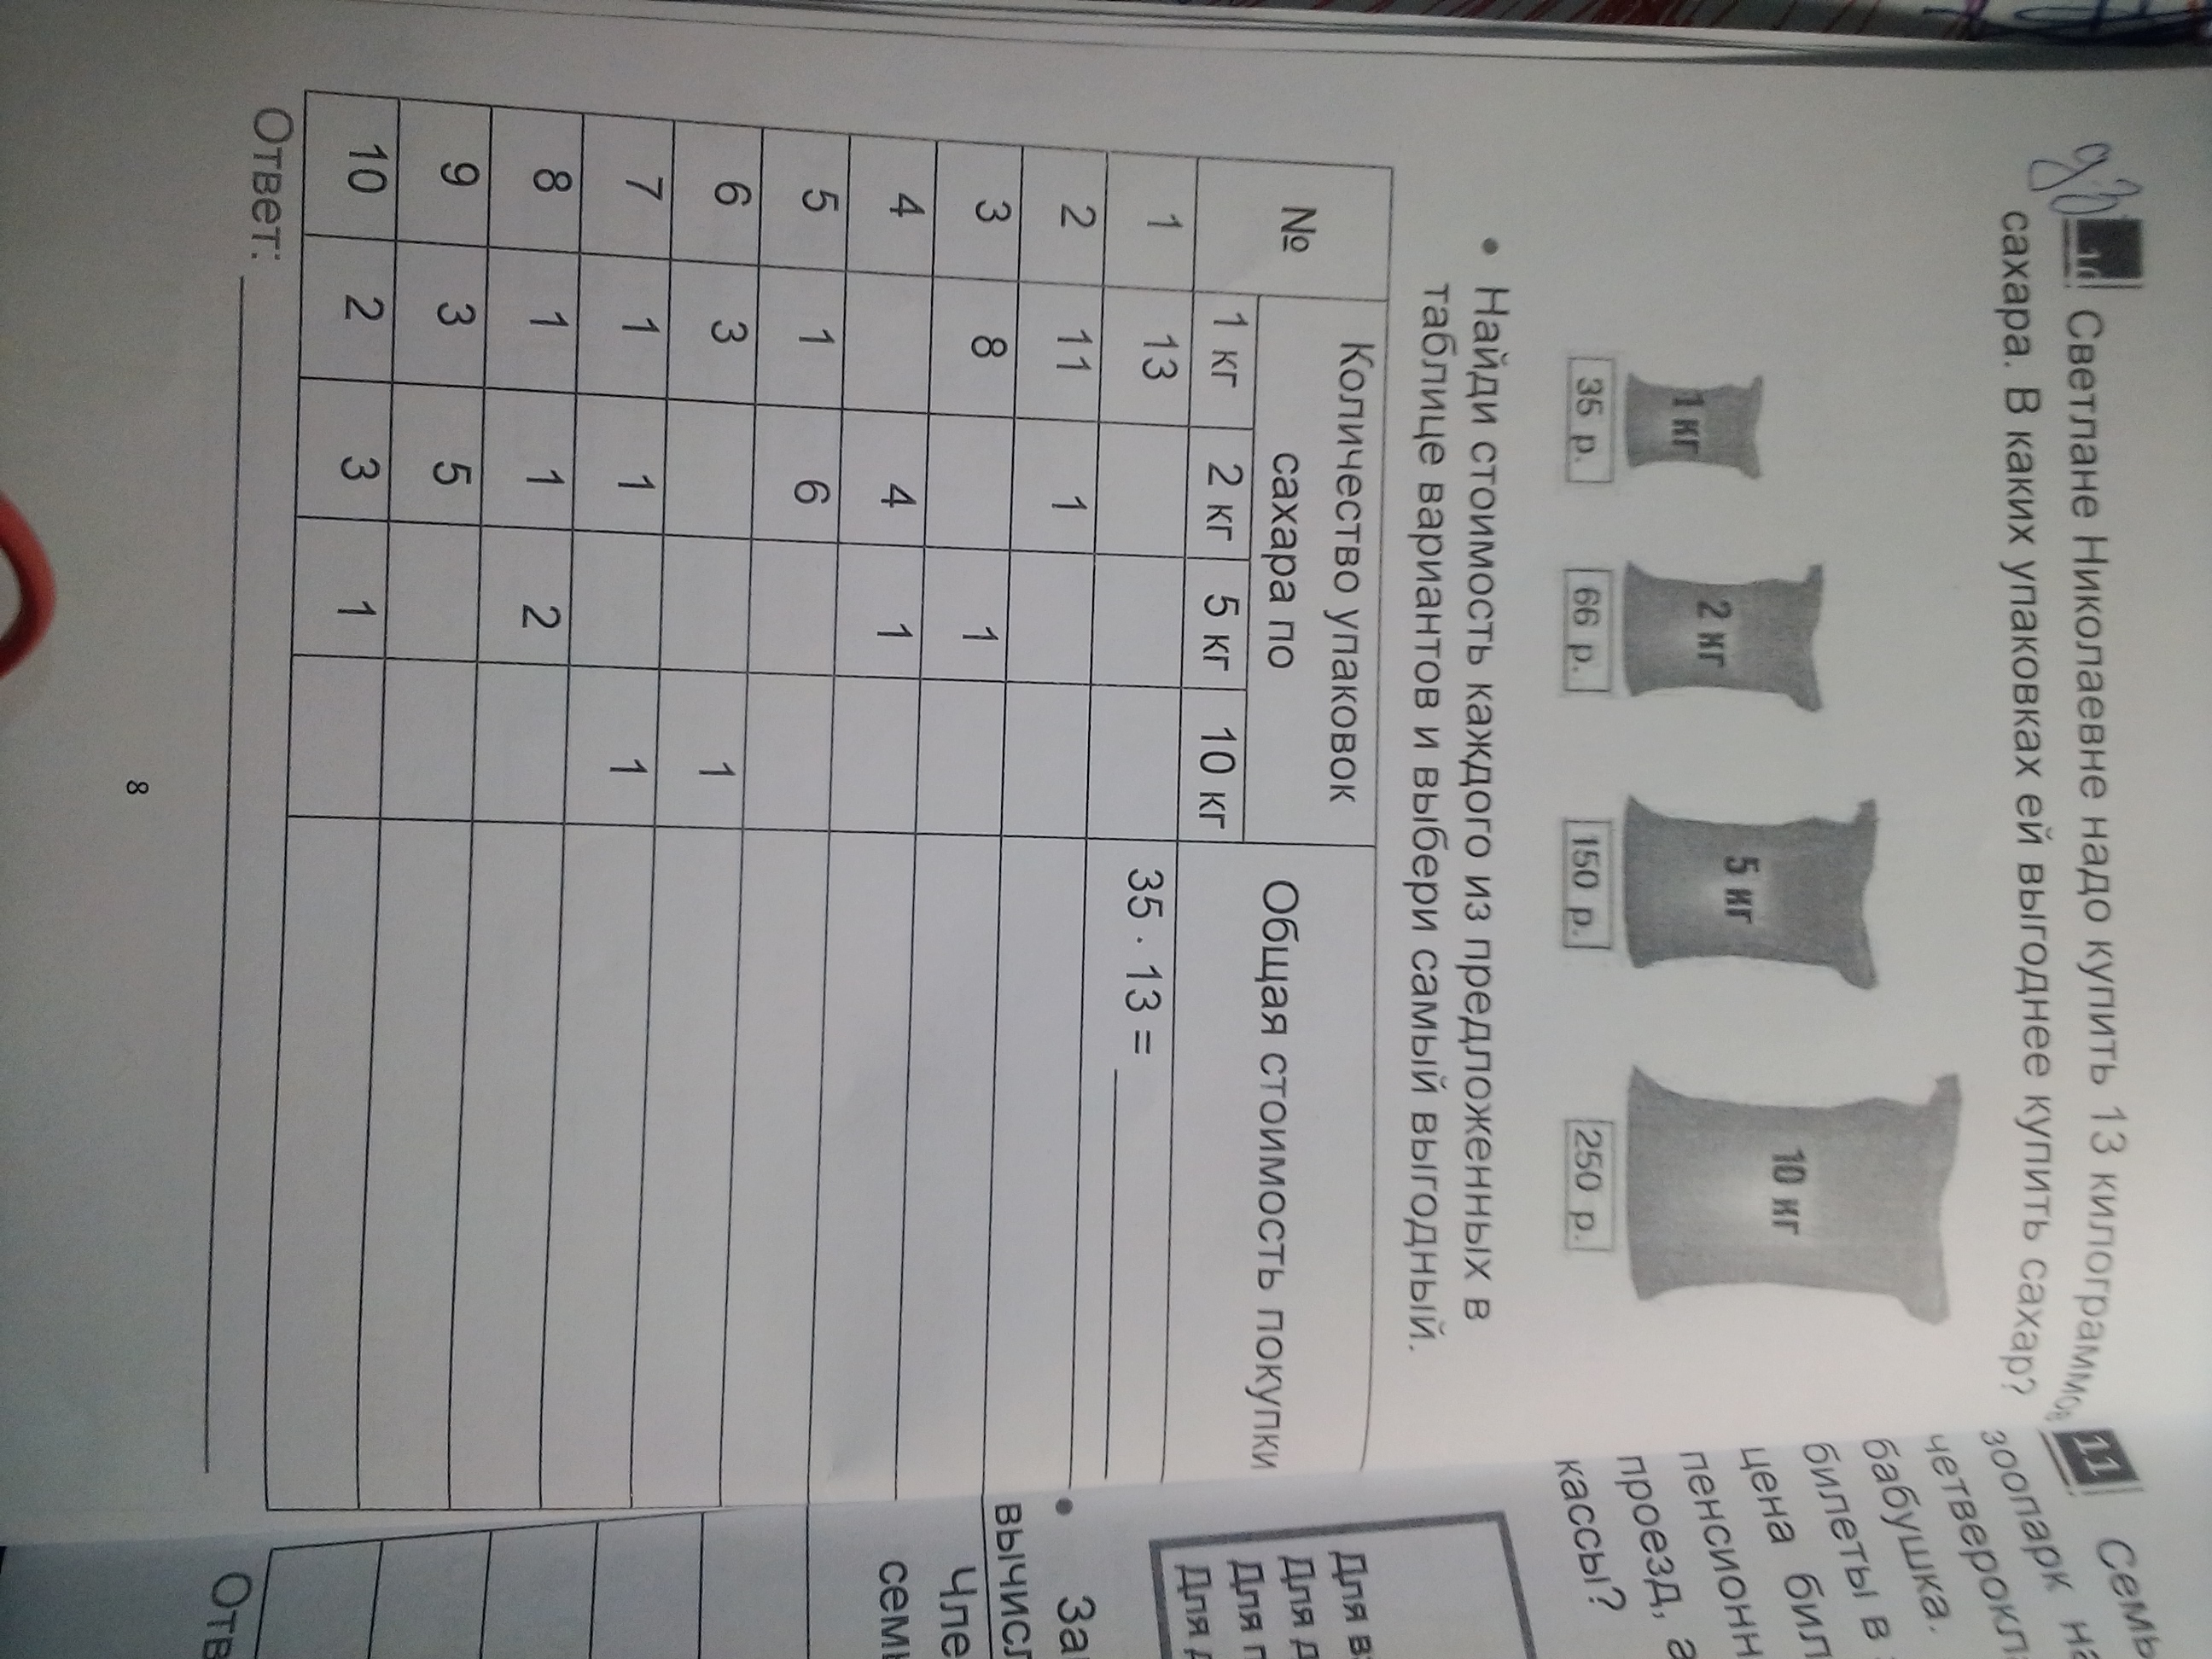 10 Светлане Николаевне надо купить 13 килограммов
сахара. В каких упаковках ей выгоднее купить сахар?
1 кг 2 кг 5 кг 10 кг
35 р. 66 р. 150 р. 250 р.
• Найди стоимость каждого из предложенных в
таблице вариантов и выбери самый выгодный.
№ Количество упаковок сахара по Общая стоимость покупки
1 кг 2 кг 5 кг 10 кг
1 13 35 · 13 = ______
2 11 1
3 8 1
4 4 1
5 1 6
6 3 1
7 1 1 1
8 1 1 2
9 3 5
10 2 3 1
Ответ: ______
8
11 Семь
зоопарк на
четверокл
бабушка.
билеты в
цена бил
пенсионн
проезд, а
кассы?
Для в
Для д
Для п
Для д
• За
вычисл
Чле
семь
Отв